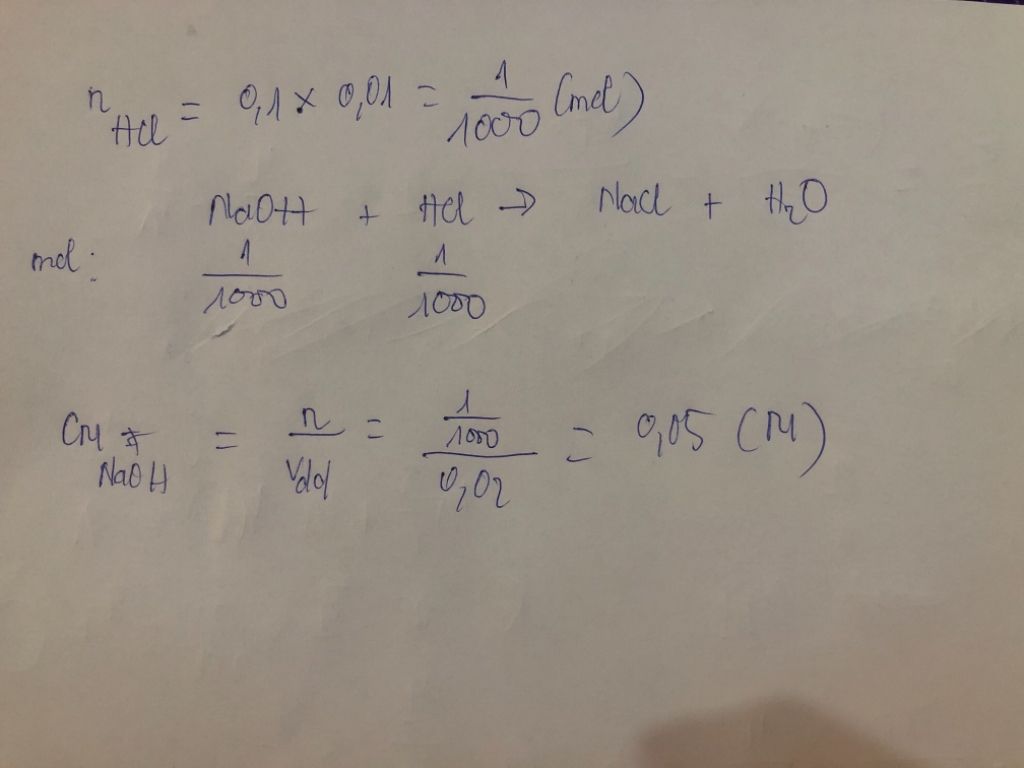 n HCl = 0,1 × 0,01 = 1/1000 (mol)
NaOH + HCl → NaCl + H₂O
mol: 1/1000 1/1000
CM NaOH = n/Vdd = (1/1000)/0,02 = 0,05 (M)